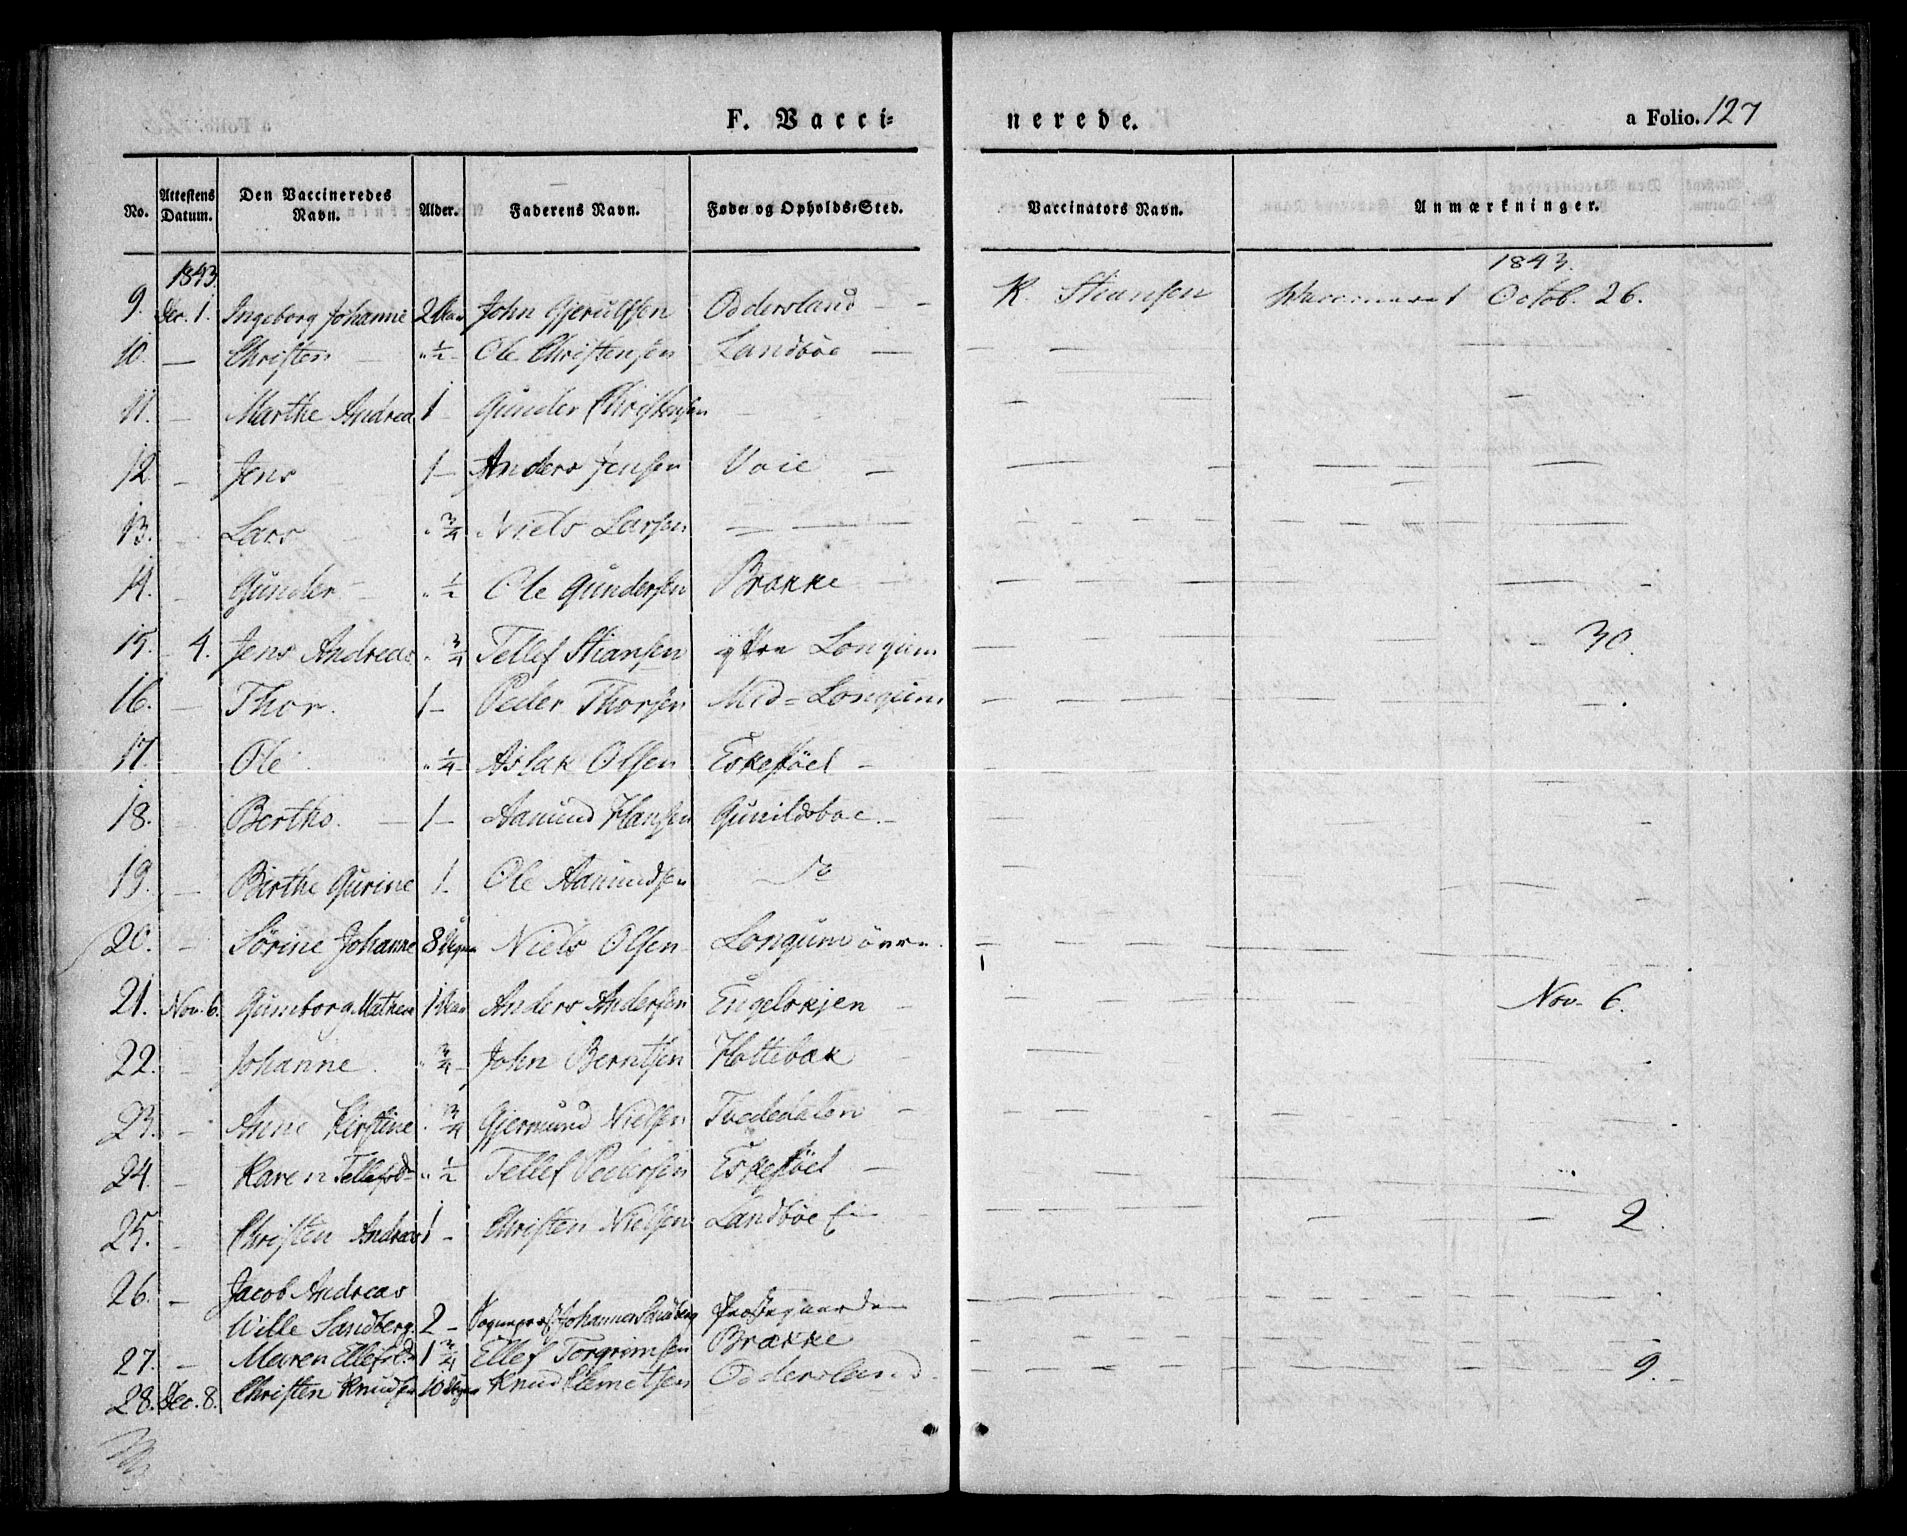 F. Vacci= nerede. a Folio. 127
No. Attestens Datum. Den Vaccineredes Navn. Alder. Faderens Navn. Føde= og Opholds=Sted. Vaccinators Navn. Anmærkninger.
1843. 1843.
9. Dec. 1. Ingeborg Johanne 2 John Gjerulfsen Oddersland - - K. Stiansen Octob. 26.
10. — Christen — " ½ - Ole Christensen Landböe —
11. — Marthe Andrea 1 - Gunder Christensen
12 — Jens 1 - Anders Jensen Voie —
13. - Lars " ¾ Niels Larsen — —
14. - Gunder - " ½ Ole Gundersen Brække —
15. - 4. Jens Andreas " ¾ Tellef Stiansen yttre Longum — 30.
16. — Thor. 1 - Peder Thorsen Mid=Longum —
17. Ole " ¼ - Aslak Olsen Eskeföel -
18. - Berthe. — 1 - Aamund Hansen Gunildsboe. -
19. — Birthe Gurine 1 - Ole Aamundsen do
20. - Sörine Johanne 8 Niels Olsen Longum övre.
21. Nov. 6. Gunborg Mathea 1 Anders Andersen Engelskjen - Nov. 6.
22. - Johanne. " ¾ - John Berntsen Flottebæk
23. - Anne Kirstine " ¾ Gjermund Nielsen Tvededalen -
24 - Karen Tellefsd. " ½ Tellef Pedersen Eskeföel —
25. - Christen Andreas 1 - Christen Nielsen Landböe 2.
26. - Jacob Andreas
Wille Sandberg. 2 - Sognepræst Johannes Sandberg Præstegaarden
27. — Maren Ellefsd. 1 ¾ Ellef Torgrimsen Brække 9. -
28. Dec. 8. Christen Knudsen 10 Knud Clemetsen Oddersland.